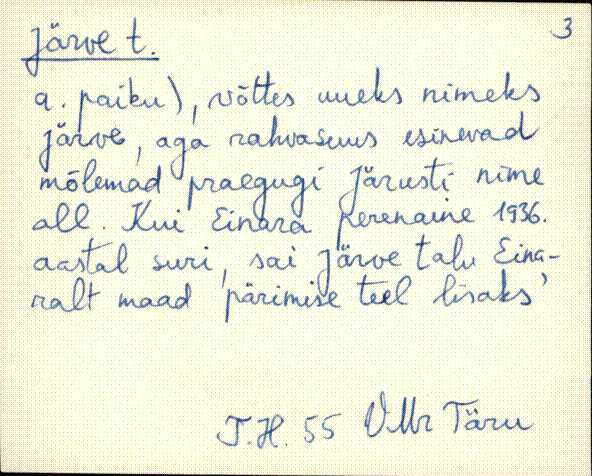 Järve t.
3
a. paiku), võttes uueks nimeks
järve, aga rahvasuus esinevad
mõlemad praegugi Järusti nime
all. Kui Einara perenaine 1936.
aastal suri, sai järve talu Eina-
ralt maad pärimise teel lisaks'
T.H. 55 VMr Täru